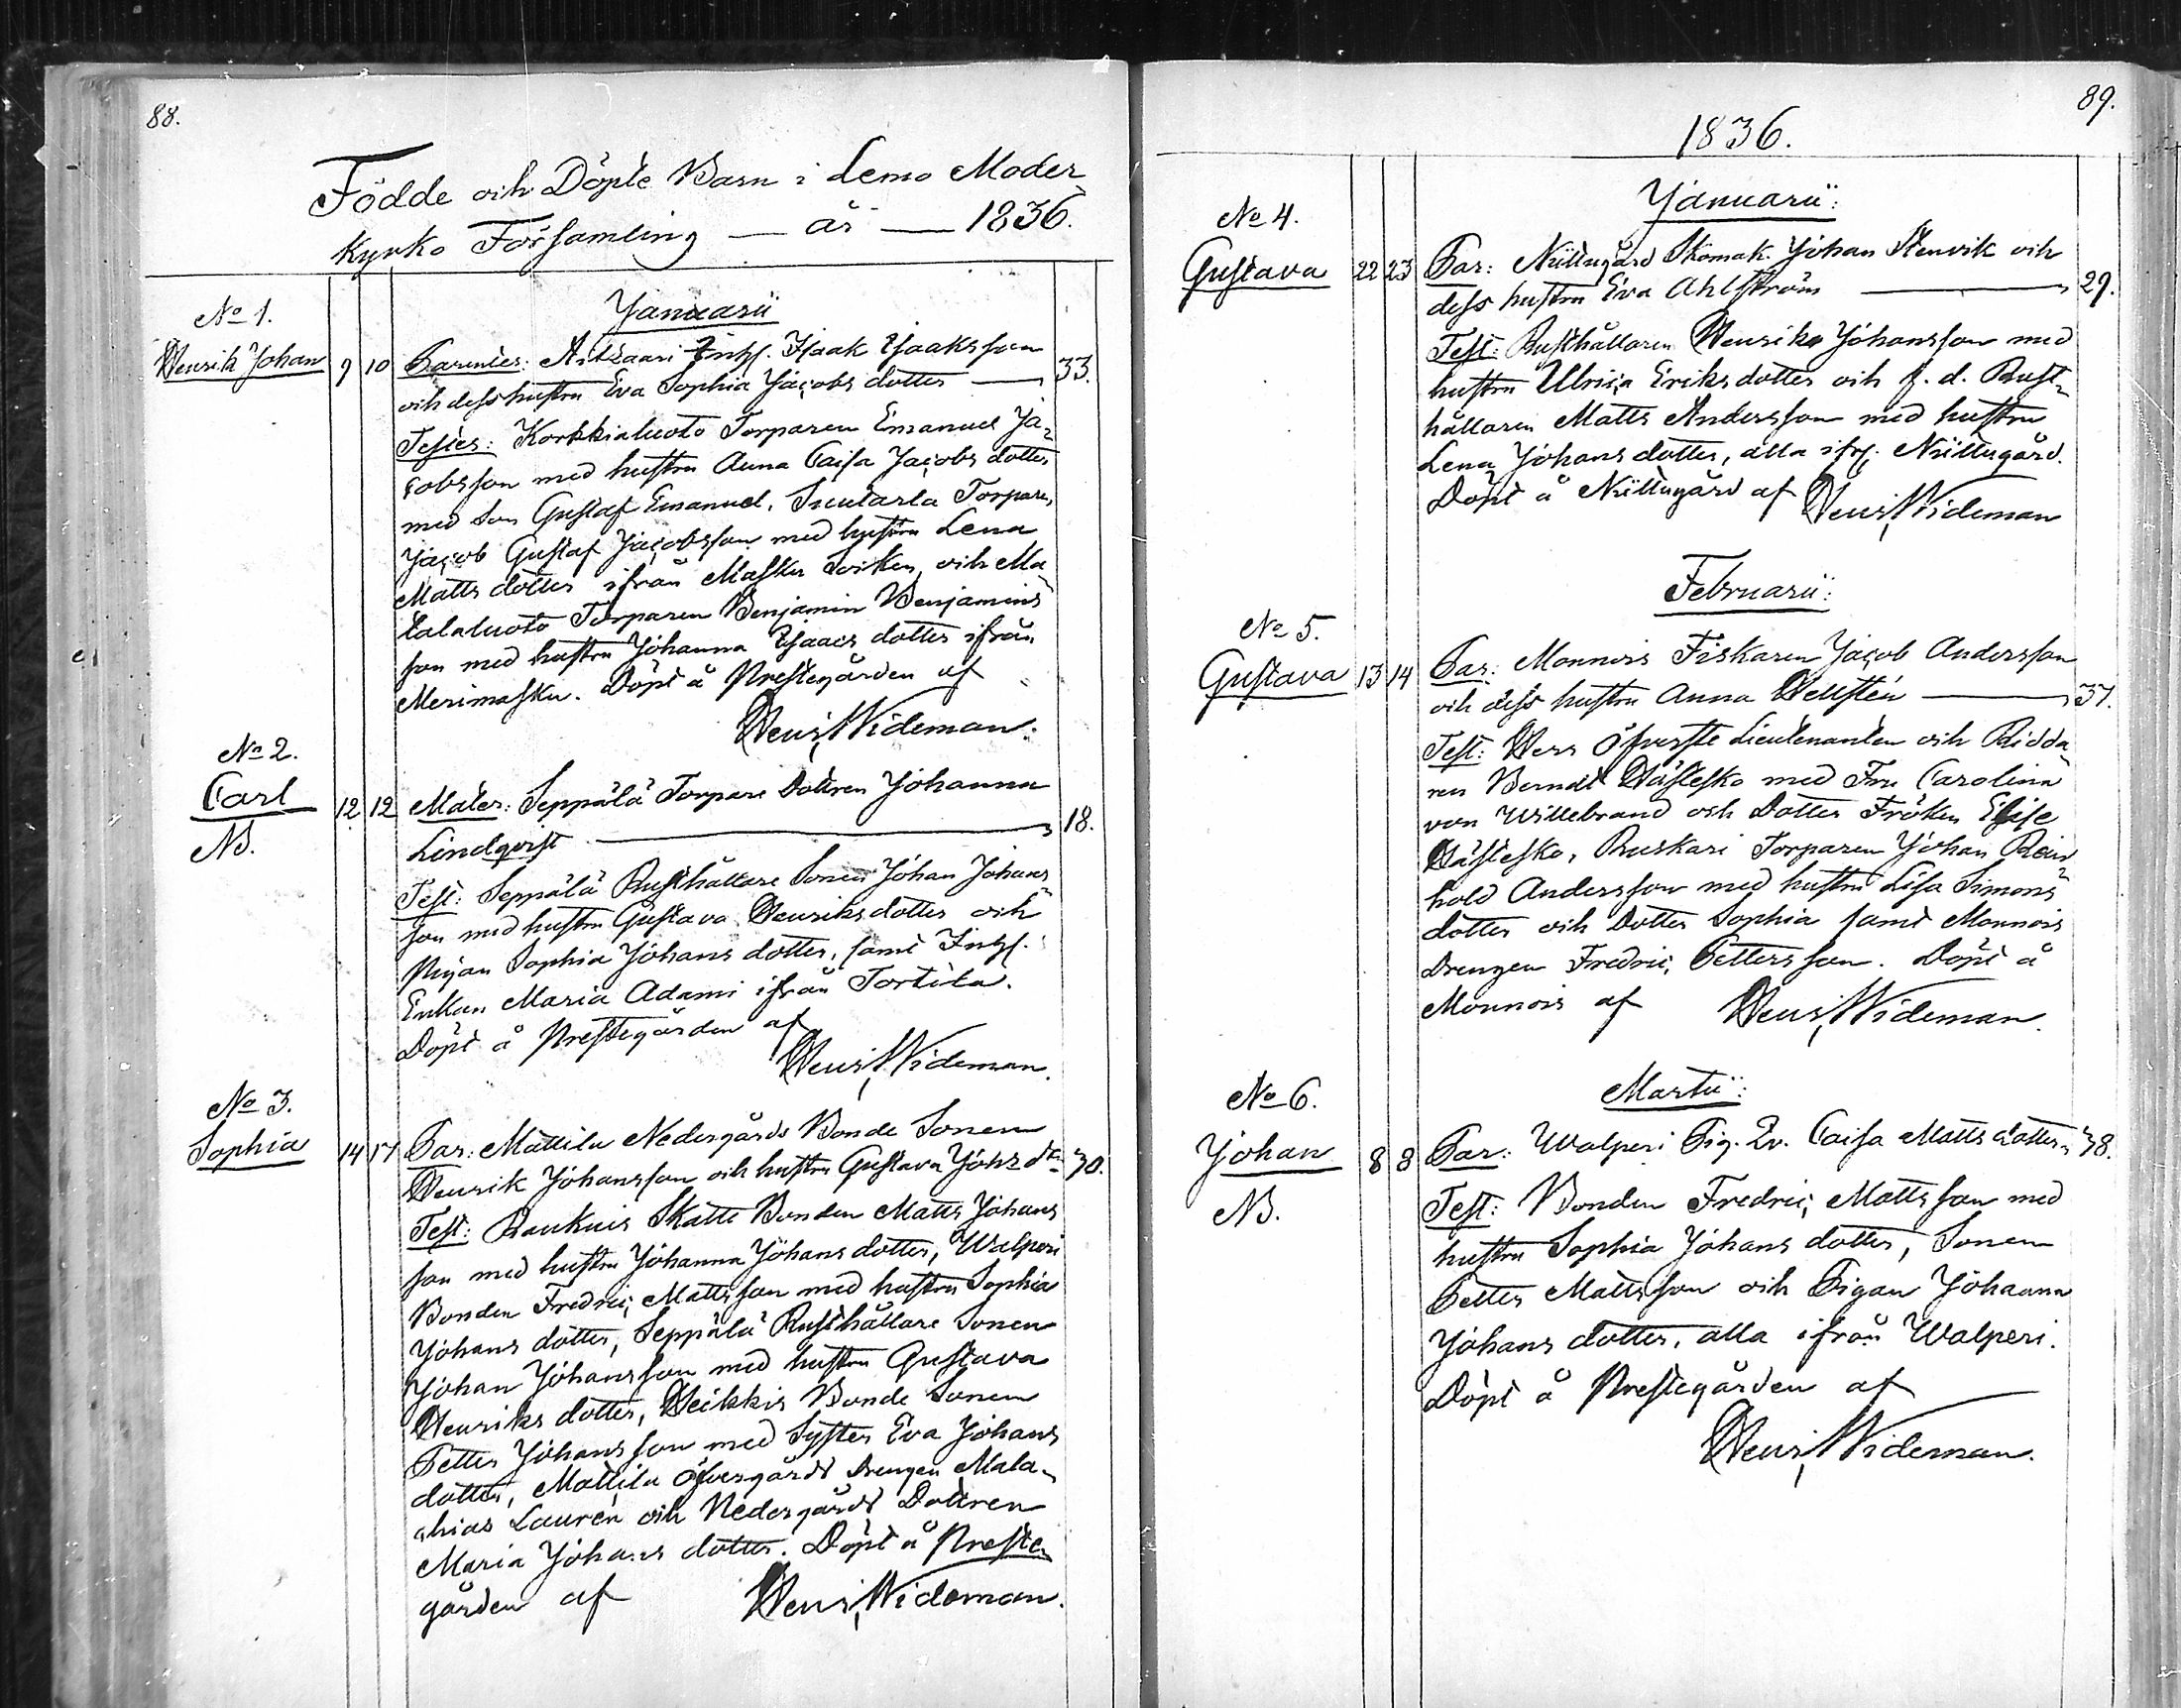 88.
Födde och Döpte Barn i Lemo Moder
Kyrko Församling — år — 1836.
Januarii
No 1.
Henrik Johan 9 10 Parentes: Artsaari Inhs. Isaak Isaaksson
och dess hustru Eva Sophia Jacobs dotter — 33.
Testes: Korkkialuoto Torparen Emanuel Ja-
cobsson med hustru Anna Caisa Jacobs dotter
med Son Gustaf Emanuel, Suutarla Torparen
Jacob Gustaf Jacobsson med hustru Lena
Matts dotter ifrån Masku Socken, och Ma-
talaluoto Torparen Benjamin Benjamins
son med hustru Johanna Isaacs dotter ifrån
Merimasku. Döpt å Prestegården af
Henr. Wideman.
No 2.
Carl 12 12 Mater: Seppälä Torpare Dottren Johanna
NB. Lindqvist — 18.
Test: Seppälä Rusthållare Sonen Johan Johans
son med hustru Gustava Henriks dotter och
Pigan Sophia Johans dotter, samt Inhs.
Enkan Maria Adami ifrån Tortila.
Döpt å Prestegården af
Henr. Wideman.
No 3.
Sophia 14 17 Par: Mattila Nedergårds Bonde Sonen
Henrik Johansson och hustru Gustava Johs dtr 30.
Test: Raukuis Skatte Bonden Matts Johans
son med hustru Johanna Johans dotter, Walperi
Bonden Fredric Mattsson med hustru Sophia
Johans dotter, Seppälä Rusthållare Sonen
Johan Johansson med hustru Gustava
Henriks dotter, Heikkis Bonde Sonen
Petter Johansson med Syster Eva Johans
dotter, Mattila Öfvergårds Drengen Mala-
chias Laurén och Nedergårds Dottren
Maria Johans dotter. Döpt å Preste-
gården af Henr. Wideman.
89.
1836.
Januarii:
No 4.
Gustava 22 23 Par: Niittugård Skomak. Johan Stenvik och
dess hustru Eva Ahlström — 29.
Test: Rusthållaren Henrik Johansson med
hustru Ulrica Eriks dotter och f. d. Rust-
hållaren Matts Andersson med hustru
Lena Johans dotter, alla ifr. Niittugård.
Döpt å Niittugård af Henr. Wideman
Februarii:
No 5.
Gustava 13 14 Par: Monnois Fiskaren Jacob Andersson
och dess hustru Anna Hellstén — 37.
Test: Herr Öfverste Lieutenanten och Ridda
ren Berndt Hästesko med Fru Carolina
von Willebrand och Dotter Fröken Elise
Hästesko, Ruskari Torparen Johan Rein-
hold Andersson med hustru Lisa Simons
dotter och Dotter Sophia samt Monnois
Drengen Fredric Pettersson. Döpt å
Monnois af Henr. Wideman.
Martii:
No 6.
Johan 8 8 Par: Walperi Pig. Qv. Caisa Matts dotter 38.
NB. Test: Bonden Fredric Mattsson med
hustru Sophia Johans dotter, Sonen
Petter Mattsson och Pigan Johanna
Johans dotter, alla ifrån Walperi.
Döpt å Prestegården af
Henr. Wideman.